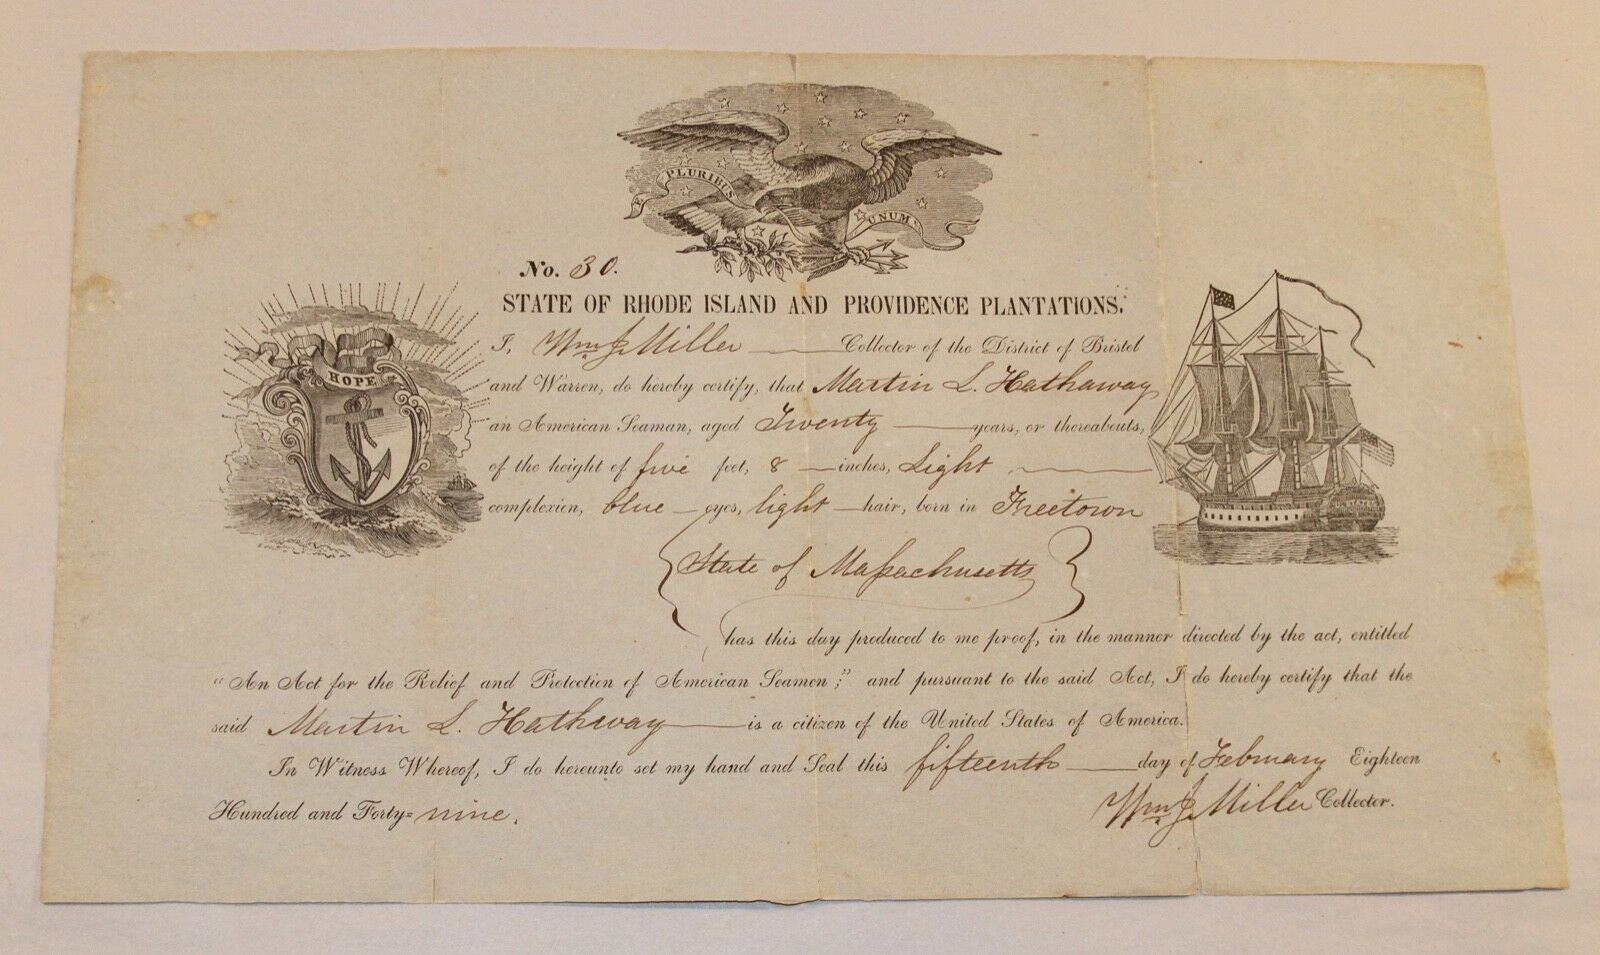 E PLURIBUS UNUM
No. 30.
STATE OF RHODE ISLAND AND PROVIDENCE PLANTATIONS.
HOPE
I, Wm J. Miller Collector of the District of Bristol
and Warren, do hereby certify, that Martin L. Hathaway
an American Seaman, aged Twenty years, or thereabouts,
of the height of five feet, 8 inches, Light
complexion, blue eyes, light hair, born in Freetown
State of Massachusetts
has this day produced to me proof, in the manner directed by the act, entitled
"An Act for the Relief and Protection of American Seamen;" and pursuant to the said Act, I do hereby certify that the
said Martin L. Hathway is a citizen of the United States of America.
In Witness Whereof, I do hereunto set my hand and Seal this fifteenth day of February Eighteen
Hundred and Forty=nine.
Wm J. Miller Collector.